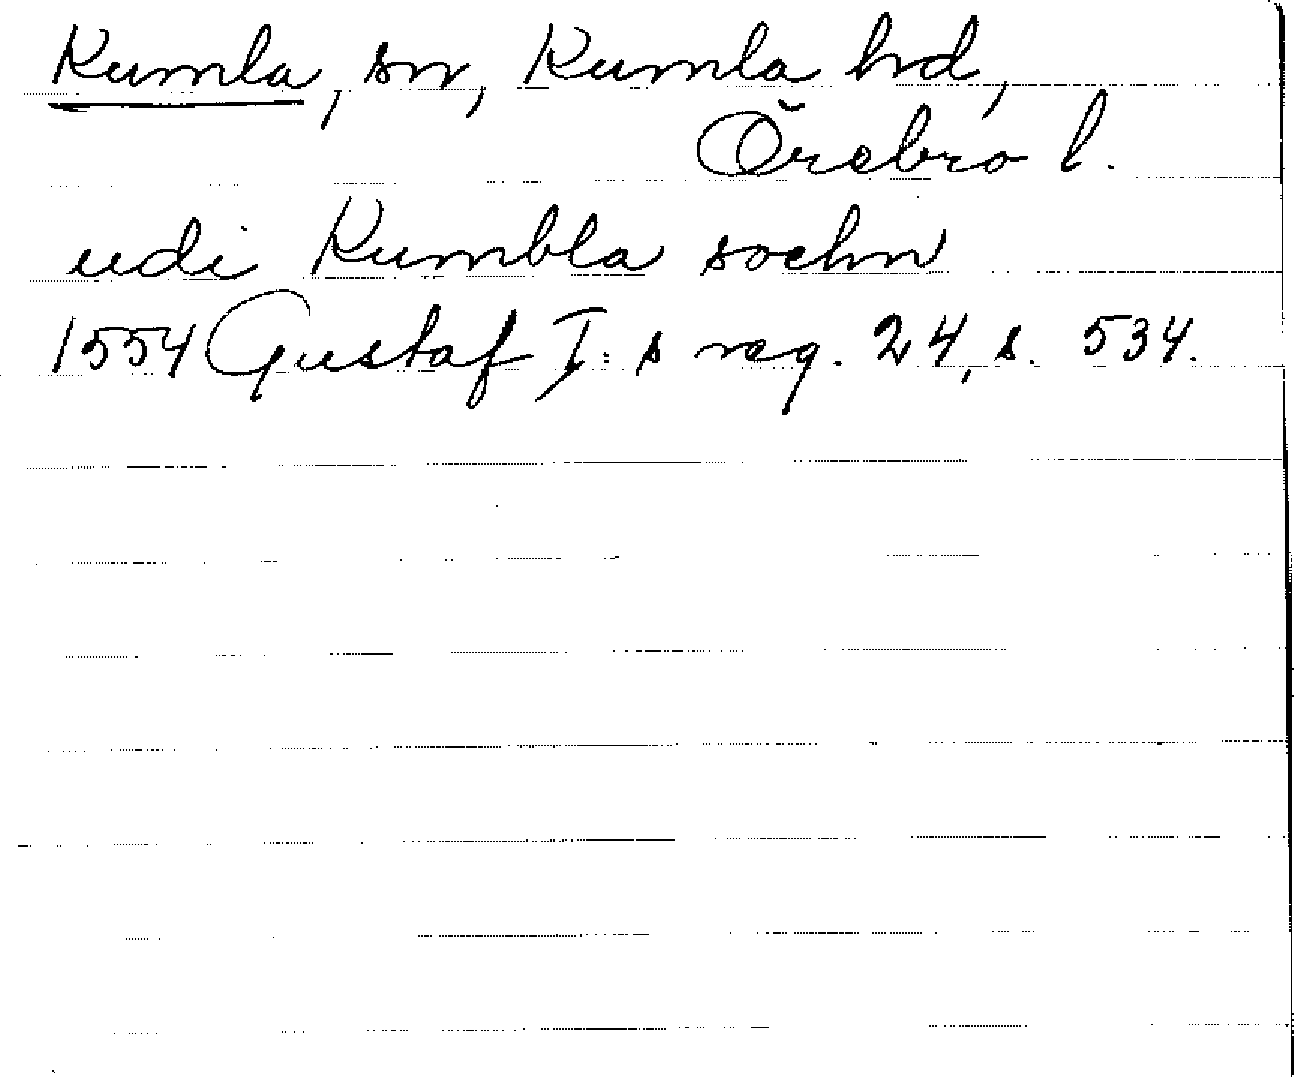 Kumla, sn, Kumla hd,
Örebro l.
udi Kumbla sochn
1554 Gustaf I:s reg. 24, s. 534.